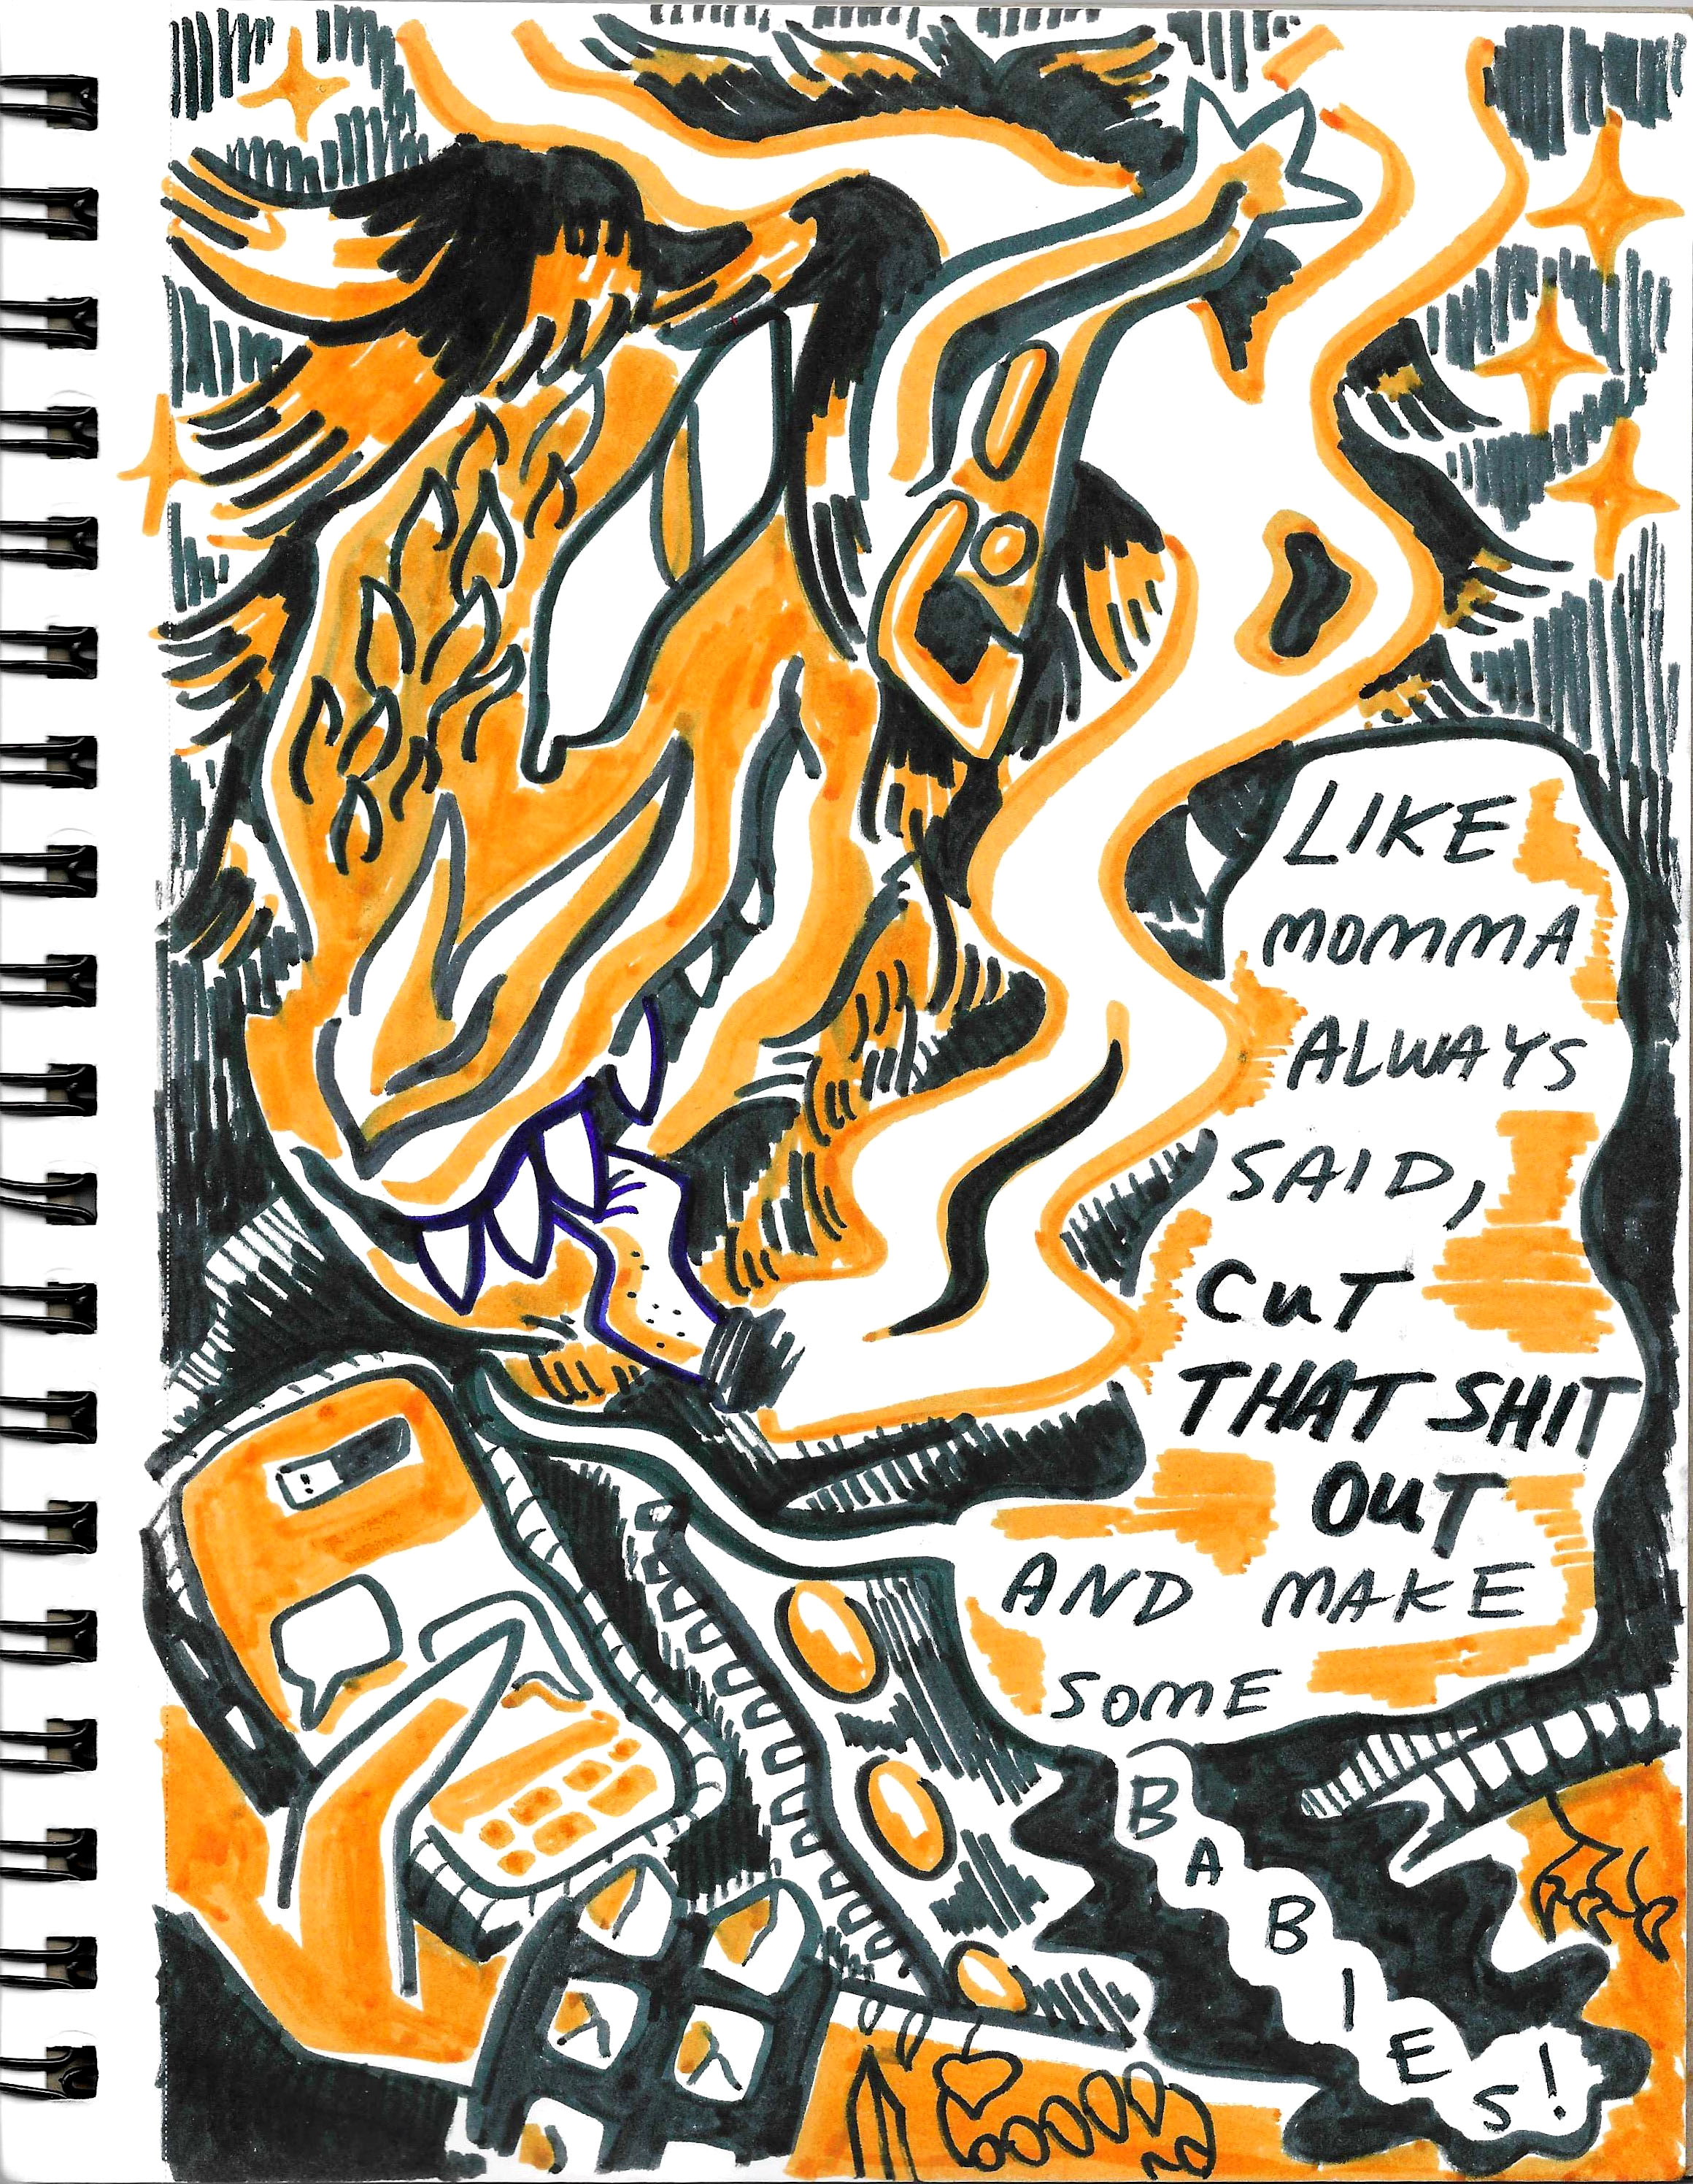 LIKE
MOMMA
ALWAYS
SAID,
CUT
THAT SHIT
OUT
AND MAKE
SOME
BABIES!